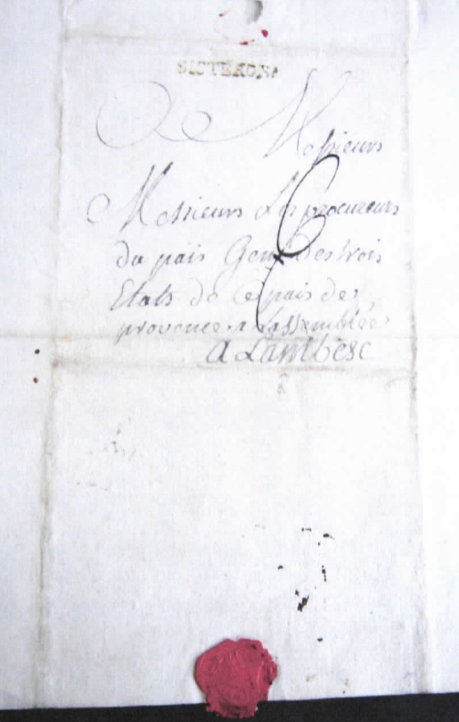 SISTERON
Messieurs
Messieurs Les procureurs
du païs Gens des trois
Etats de ce païs de
provence a Lassemblée
a Lambesc
6